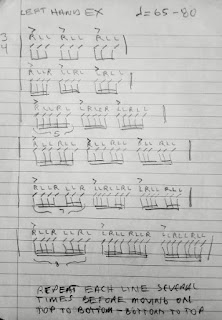 LEFT HAND EX ♩=65-80
3 RLL RLL RLL
4
RLLR LLRL LRLL
RLLRL LRLLR LLRLL
5
RLLRLL RLLRLL RLLRLL
RLLRLLR LLRLLRL LRLLRLL
7
RLLRLLRL LRLLRLLR LLRLLRLL
REPEAT EACH LINE SEVERAL
TIMES BEFORE MOVING ON
TOP TO BOTTOM - BOTTOM TO TOP